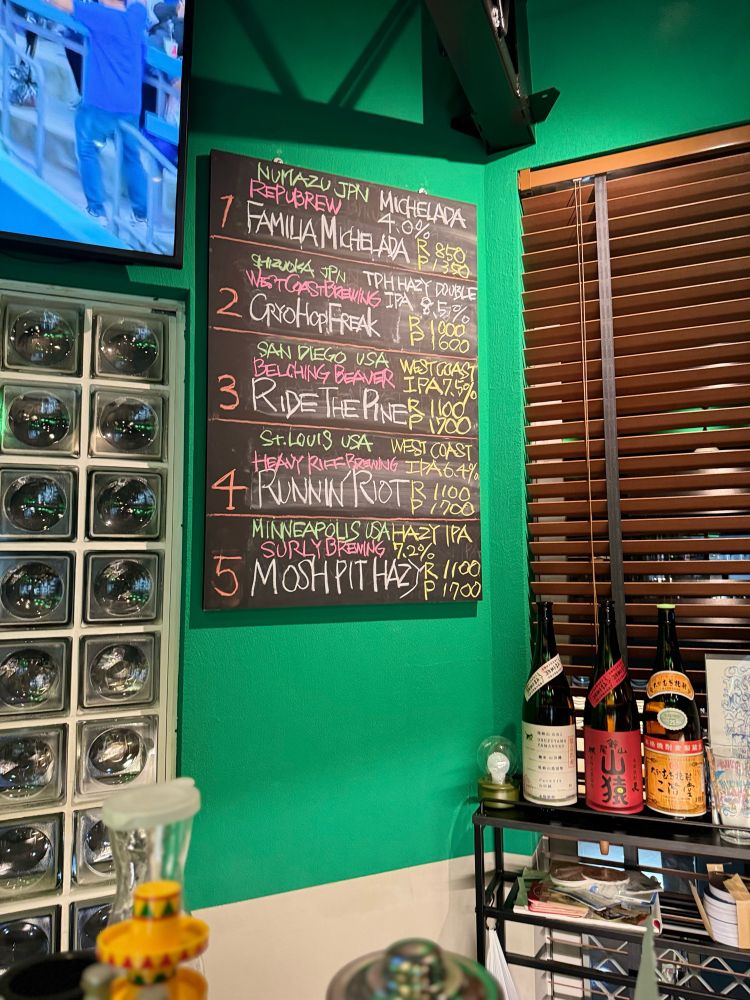 NUMAZU JPN
REPUBREW MICHELADA
1 FAMILIA MICHELADA 4.0%
R 850
P 1350
SHIZUOKA JPN TDH HAZY DOUBLE
WEST COAST BREWING IPA 8.5%
2 CRYO HOP! FREAK R 1000
P 1600
SAN DIEGO USA WEST COAST
BELCHING BEAVER IPA 7.5%
3 RIDE THE PINE R 1100
P 1700
ST. LOUIS USA WEST COAST
HEAVY RIFF BREWING IPA 6.4%
4 RUNNIN' RIOT R 1100
P 1700
MINNEAPOLIS USA HAZY IPA
SURLY BREWING 7.2%
5 MOSH PIT HAZY R 1100
P 1700
山猿
二階堂